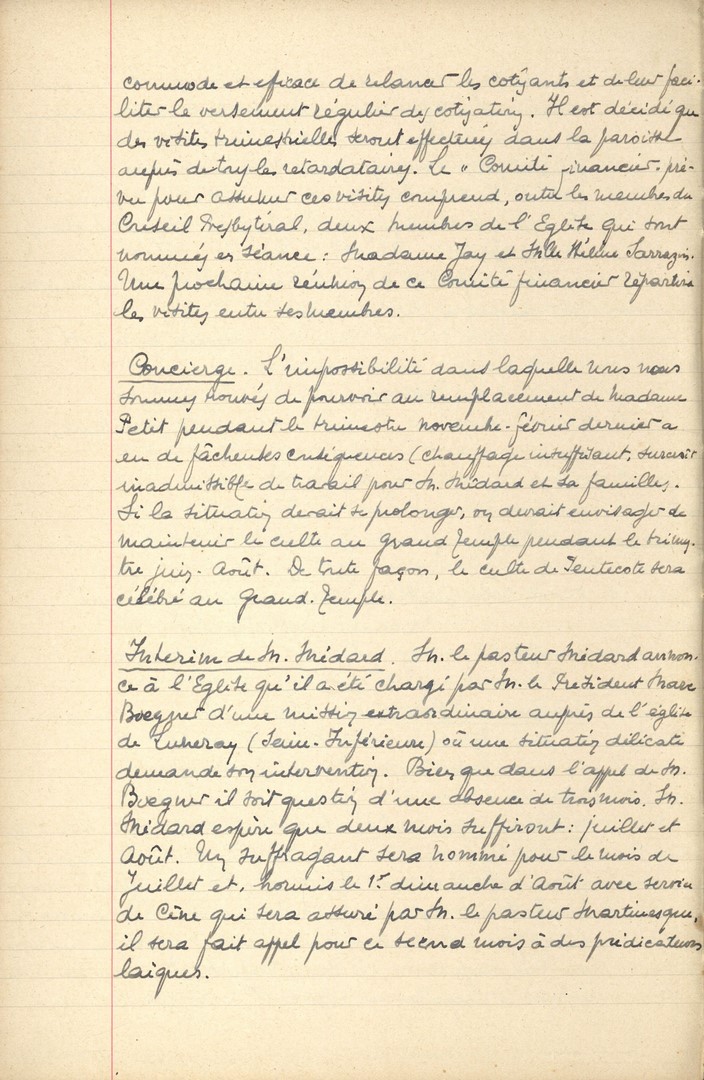 commode et eficace de relancer les cotisants et de leur faci-
liter le versement régulier des cotisations. Il est décidé que
des visites trimestrielles seront effectuées dans la paroisse
auprès de tous les retardataires. Le "Comité financier" pré-
vu pour assumer ces visites comprend, outre les membres du
Conseil Presbytéral, deux membres de l'Eglise qui sont
nommés en séance : Madame Jay et Mlle Hélène Sarrazin.
Une prochaine réunion de ce Comité financier répartira
les visites entre ses membres.
Concierge. L'impossibilité dans laquelle nous nous
sommes trouvés de pourvoir au remplacement de Madame
Petit pendant le trimestre novembre-février dernier a
eu de fâcheuses conséquences (chauffage insuffisant, surcroit
inadmissible de travail pour M. Médard et sa famille).
Si la situation devait se prolonger, on devrait envisager de
maintenir le culte au Grand Temple pendant le trimes-
tre juin-Août. De toute façon, le culte de Pentecote sera
célébré au Grand-Temple.
Interim de M. Médard. M. le pasteur Médard annon-
ce à l'Eglise qu'il a été chargé par M. le Président Marc
Boegner d'une mission extraordinaire auprès de l'église
de Luneray (Seine-Inférieure) où une situation délicate
demande son intervention. Bien que dans l'appel de M.
Boegner il soit question d'une absence de trois mois, M.
Médard espère que deux mois suffiront : juillet et
Août. Un suffragant sera nommé pour le mois de
Juillet et, hormis le 1er dimanche d'Août avec service
de Cène qui sera assuré par M. le pasteur Martinesque,
il sera fait appel pour ce second mois à des prédicateurs
laïques.